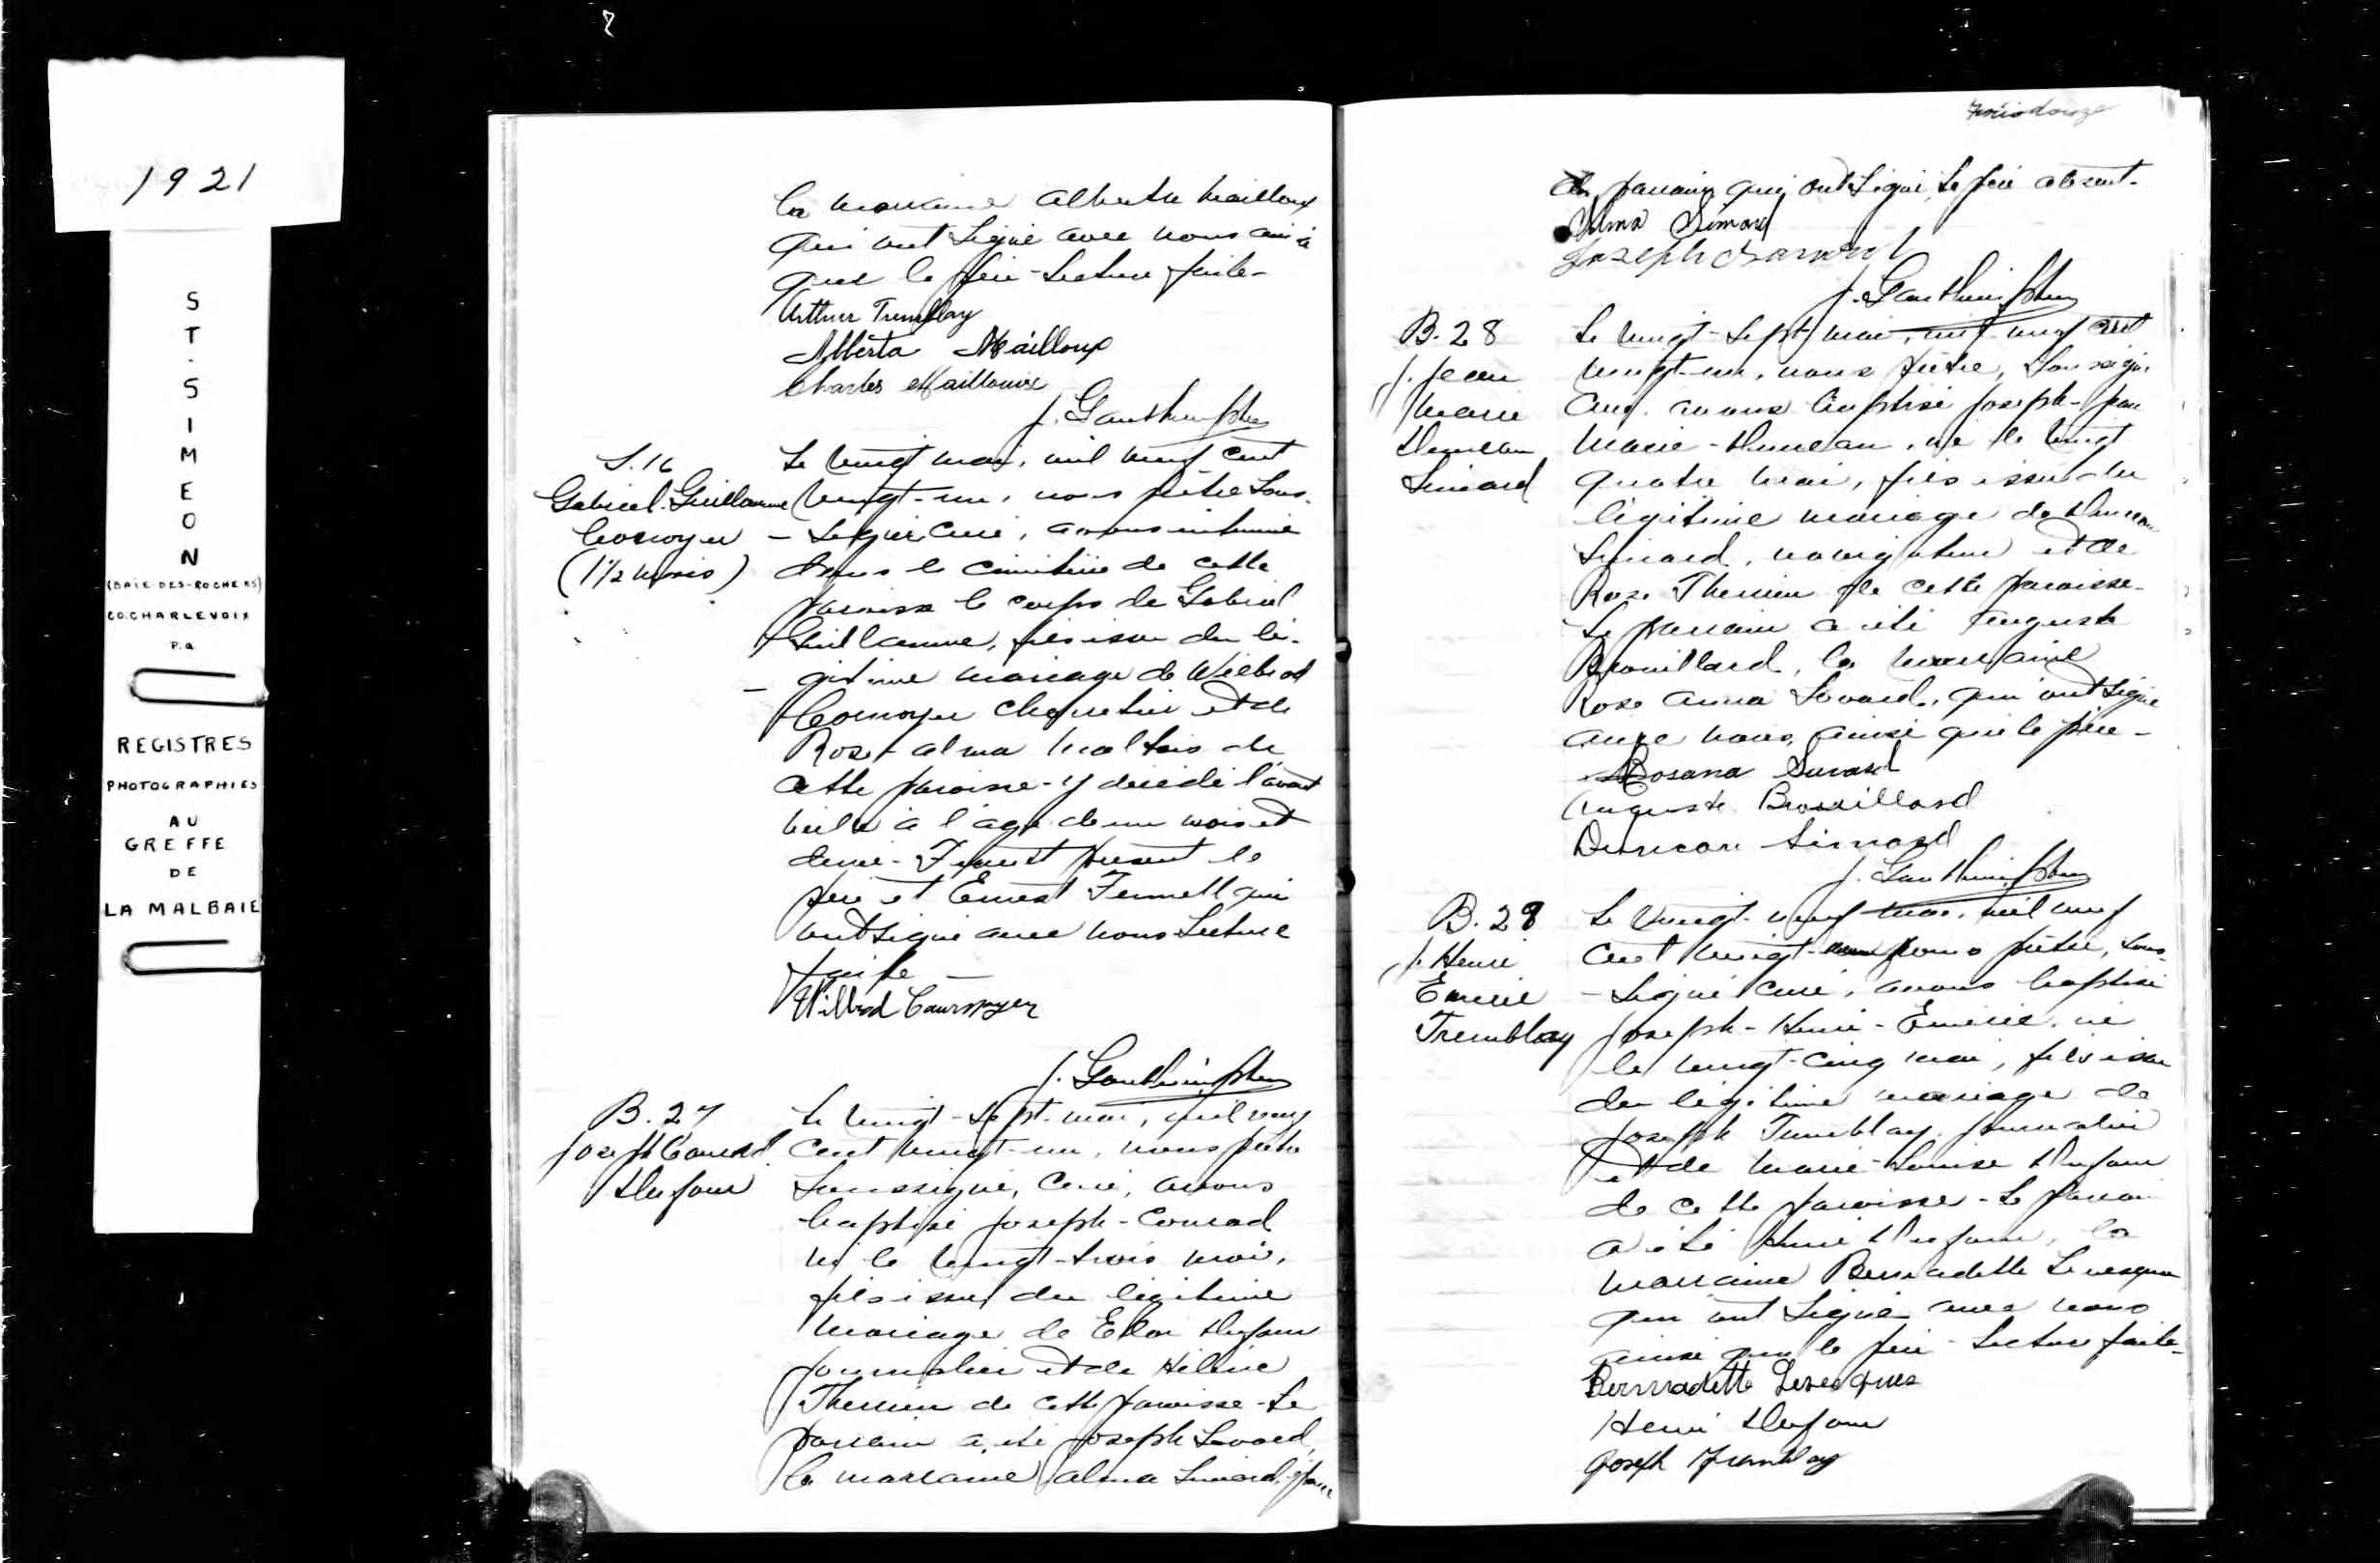 1921
ST. SIMEON
(BAIE-DES-ROCHERS)
CO. CHARLEVOIX
P.Q.
REGISTRES
PHOTOGRAPHIES
AU
GREFFE
DE
LA MALBAIE
la marraine Alberta Mailloux
qui ont signé avec nous ainsi
que le père - Lecture faite -
Arthur Tremblay
Alberta Mailloux
Charles Mailloux
J. Gauthier ptre
S. 16
Gabriel-Guillaume
Cournoyer
(1 1/2 mois)
Le vingt mai, mil neuf cent
vingt-un, nous prêtre sous-
signé curé, avons inhumé
dans le cimetière de cette
paroisse le corps de Gabriel
Guillaume, fils issu du lé-
gitime mariage de Wilbrod
Cournoyer et de
Rose-Alma Maltais de
cette paroisse - y décédé l'avant
veille à l'âge de un mois et
demi - Furent présent le
père et Ernest Fennell qui
ont signé avec nous Lecture
faite -
Wilbrod Cournoyer
J. Gauthier ptre
B. 27
Joseph Conrad
Dufour
Le vingt-sept mai, mil neuf
cent vingt-un, nous prêtre
soussigné, curé, avons
baptisé Joseph-Conrad
né le vingt-trois mai,
fils issu du légitime
mariage de Dufour
journalier et de Hélène
Therrien de cette paroisse - Le
parrain a été Joseph Savard,
la marraine Alma Simard,
parrain qui ont signé, le père absent -
Alma Simard
Joseph Savard
J. Gauthier ptre
B. 28
J. Jean
Marie
Duncan
Simard
Le vingt-sept mai, mil neuf cent
vingt-un, nous prêtre, soussigné
curé, avons baptisé Joseph-Jean
Marie-Duncan, né le vingt
quatre mai, fils issu du
légitime mariage de Duncan
Simard, navigateur et de
Rose Therrien de cette paroisse -
Le parrain a été Auguste
Brouillard, la marraine
Rose Anna Savard, qui ont signé
avec nous, ainsi que le père -
Rosana Savard
Auguste Brouillard
Duncan Simard
J. Gauthier ptre
B. 29
J. Henri
Émerie
Tremblay
Le vingt-neuf mai, mil neuf
cent vingt- nous prêtre, sous-
signé curé, avons baptisé
Joseph-Henri-Émerie, né
le vingt-cinq mai, fils issu
du légitime mariage de
Joseph Tremblay, journalier
et de Marie-Louise Dufour
de cette paroisse - Le parrain
a été Henri Dufour, la
marraine Bernadette Levesque
qui ont signé avec nous
ainsi que le père - Lecture faite -
Bernadette Levesques
Henri Dufour
Joseph Tremblay